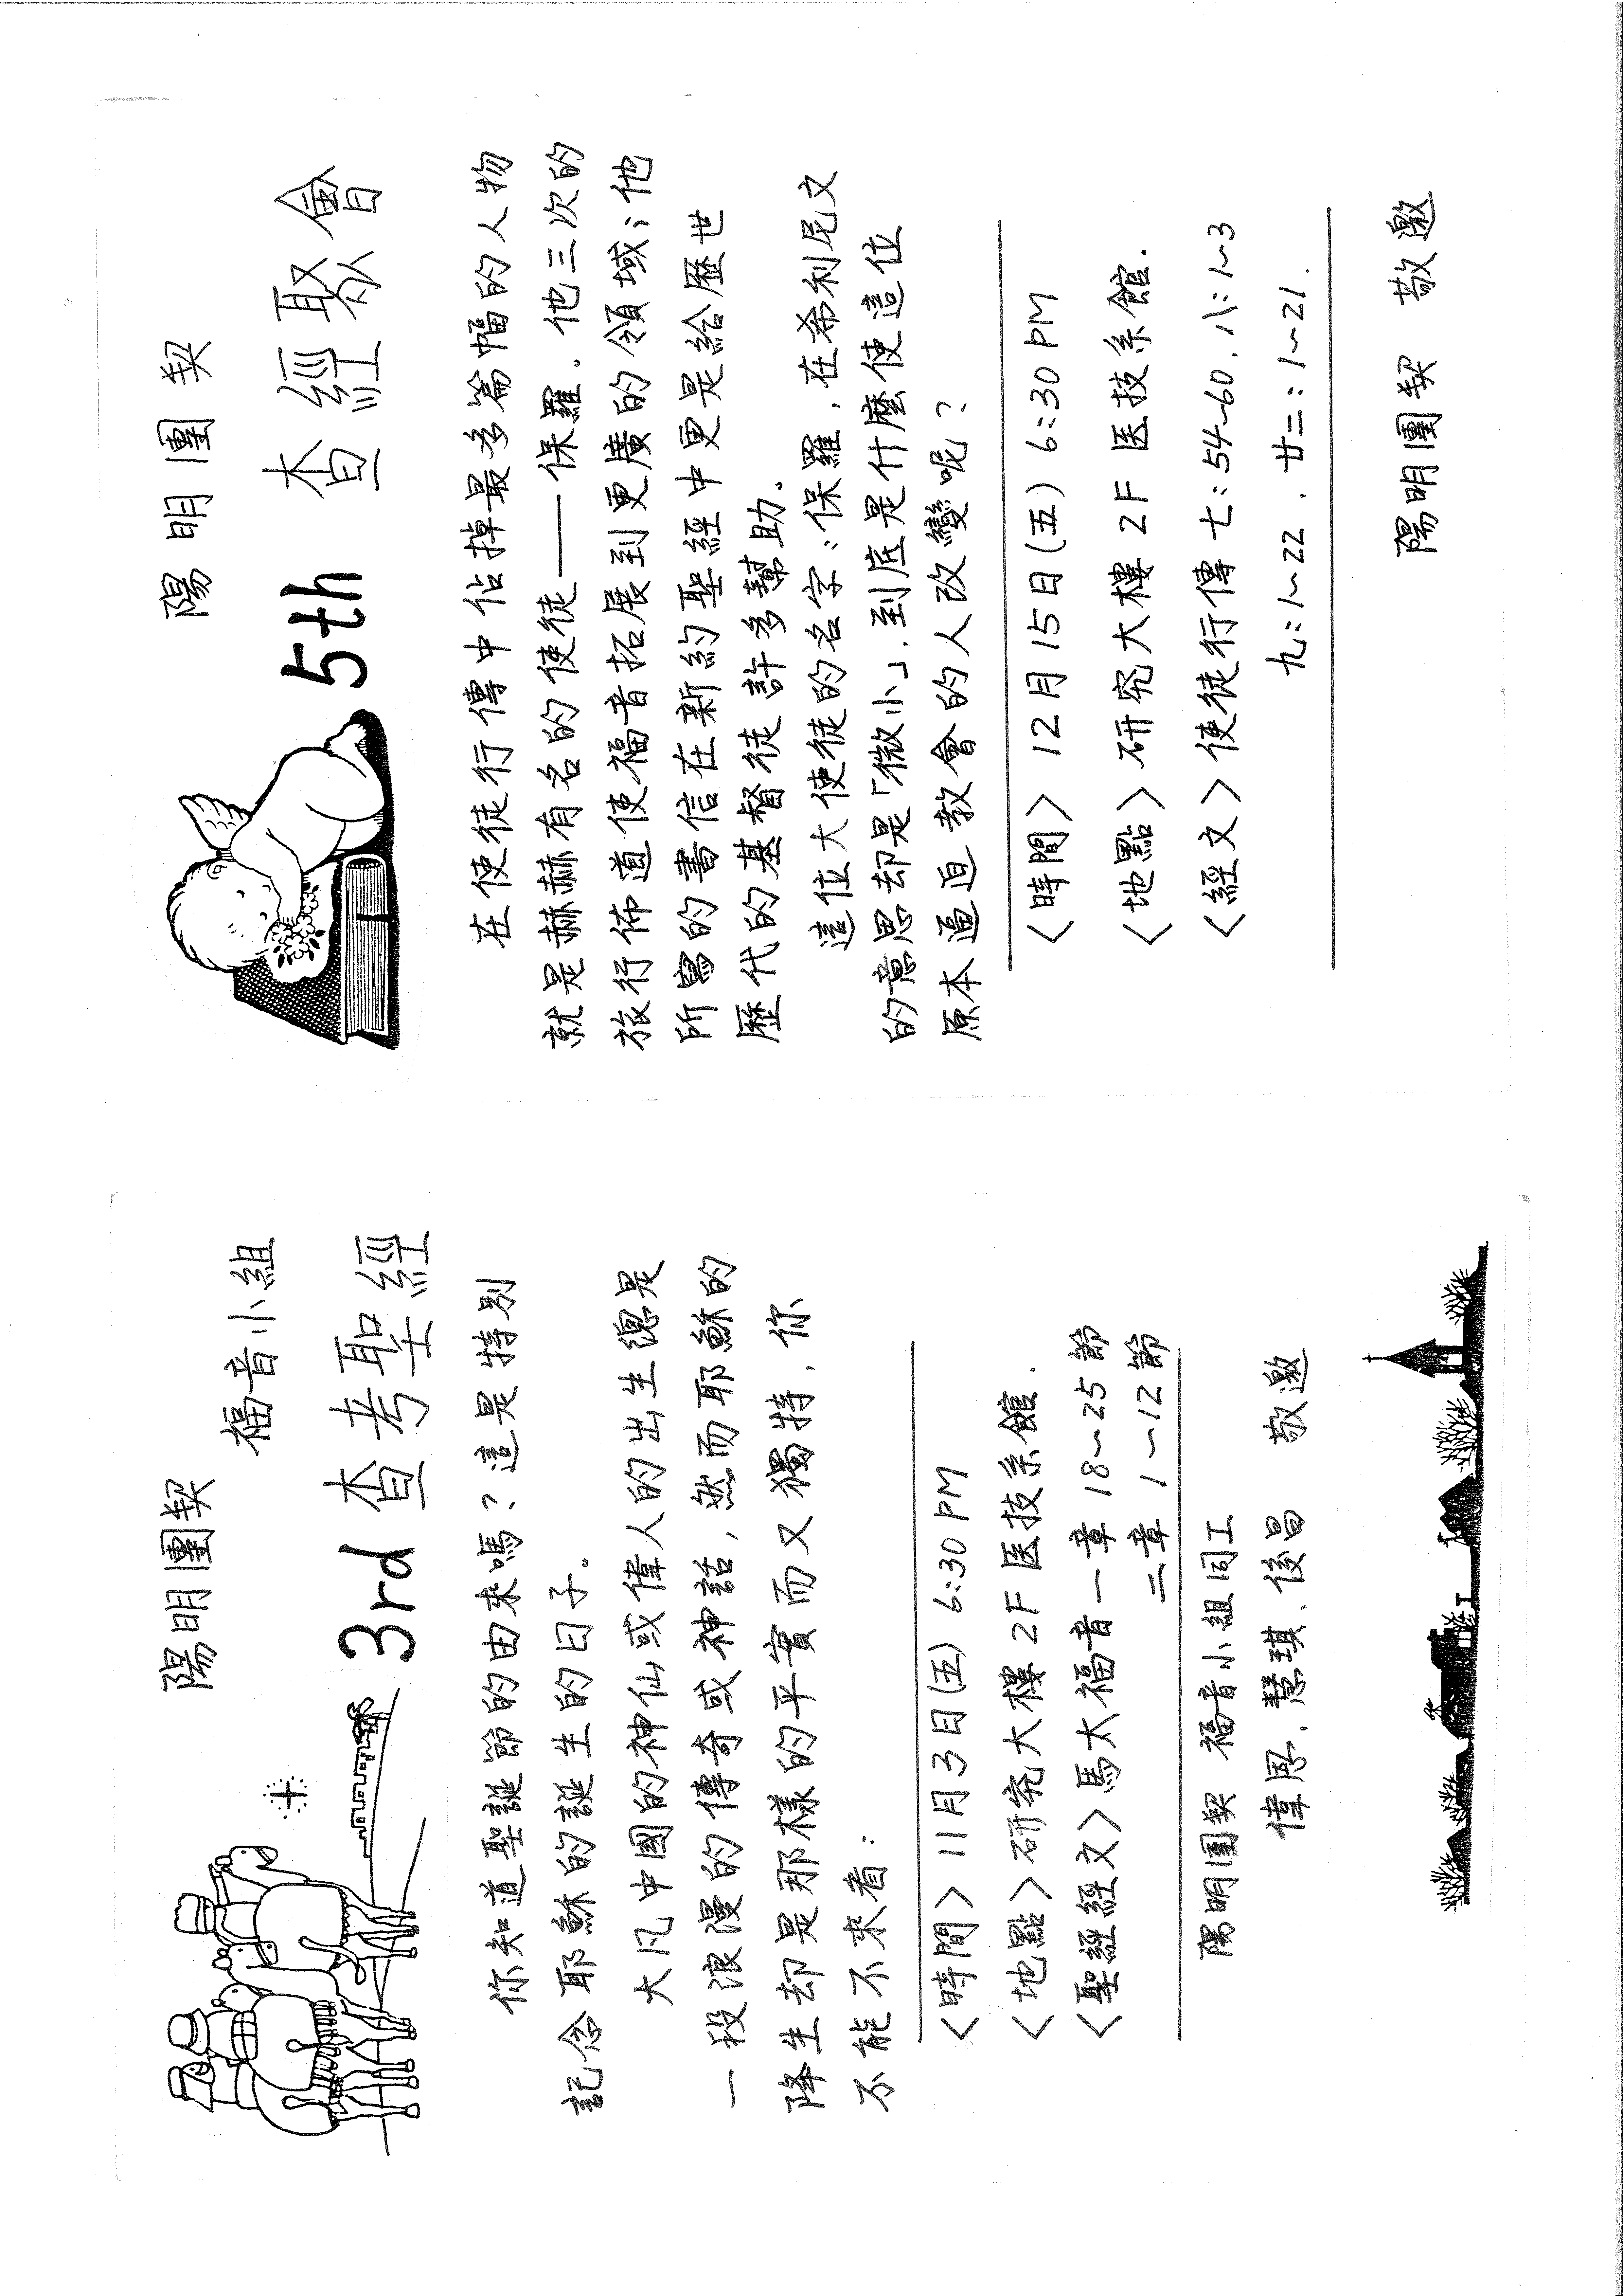 陽明團契
福音小組
3rd 查考聖經
你知道聖誕節的由來嗎？這是特別
記念耶穌的誕生的日子。
大凡中國的神仙或偉人的出生總是
一段浪漫的傳奇或神話，然而耶穌的
降生却是那樣的平實而又獨特，你
不能不來看：
〈時間〉11月3日(五) 6:30 PM
〈地點〉研究大樓 2F 医技系館．
〈聖經經文〉馬太福音一章 18~25節
二章 1~12節
陽明團契 福音小組同工
偉恩、慧琪、俊昌 敬邀
陽明團契
5th 查經聚會
在使徒行傳中佔掉最多篇幅的人物
就是赫赫有名的使徒——保羅。他三次的
旅行佈道使福音拓展到更廣的領域；他
所寫的書信在新約聖經中更是給歷世
歷代的基督徒許多幫助。
這位大使徒的名字：保羅，在希利尼文
的意思却是「微小」，到底是什麼使這位
原本逼迫教會的人改變呢？
〈時間〉12月15日(五) 6:30 PM
〈地點〉研究大樓 2F 医技系館．
〈經文〉使徒行傳七：54~60，八：1~3
九：1~22，廿二：1~21．
陽明團契 敬邀